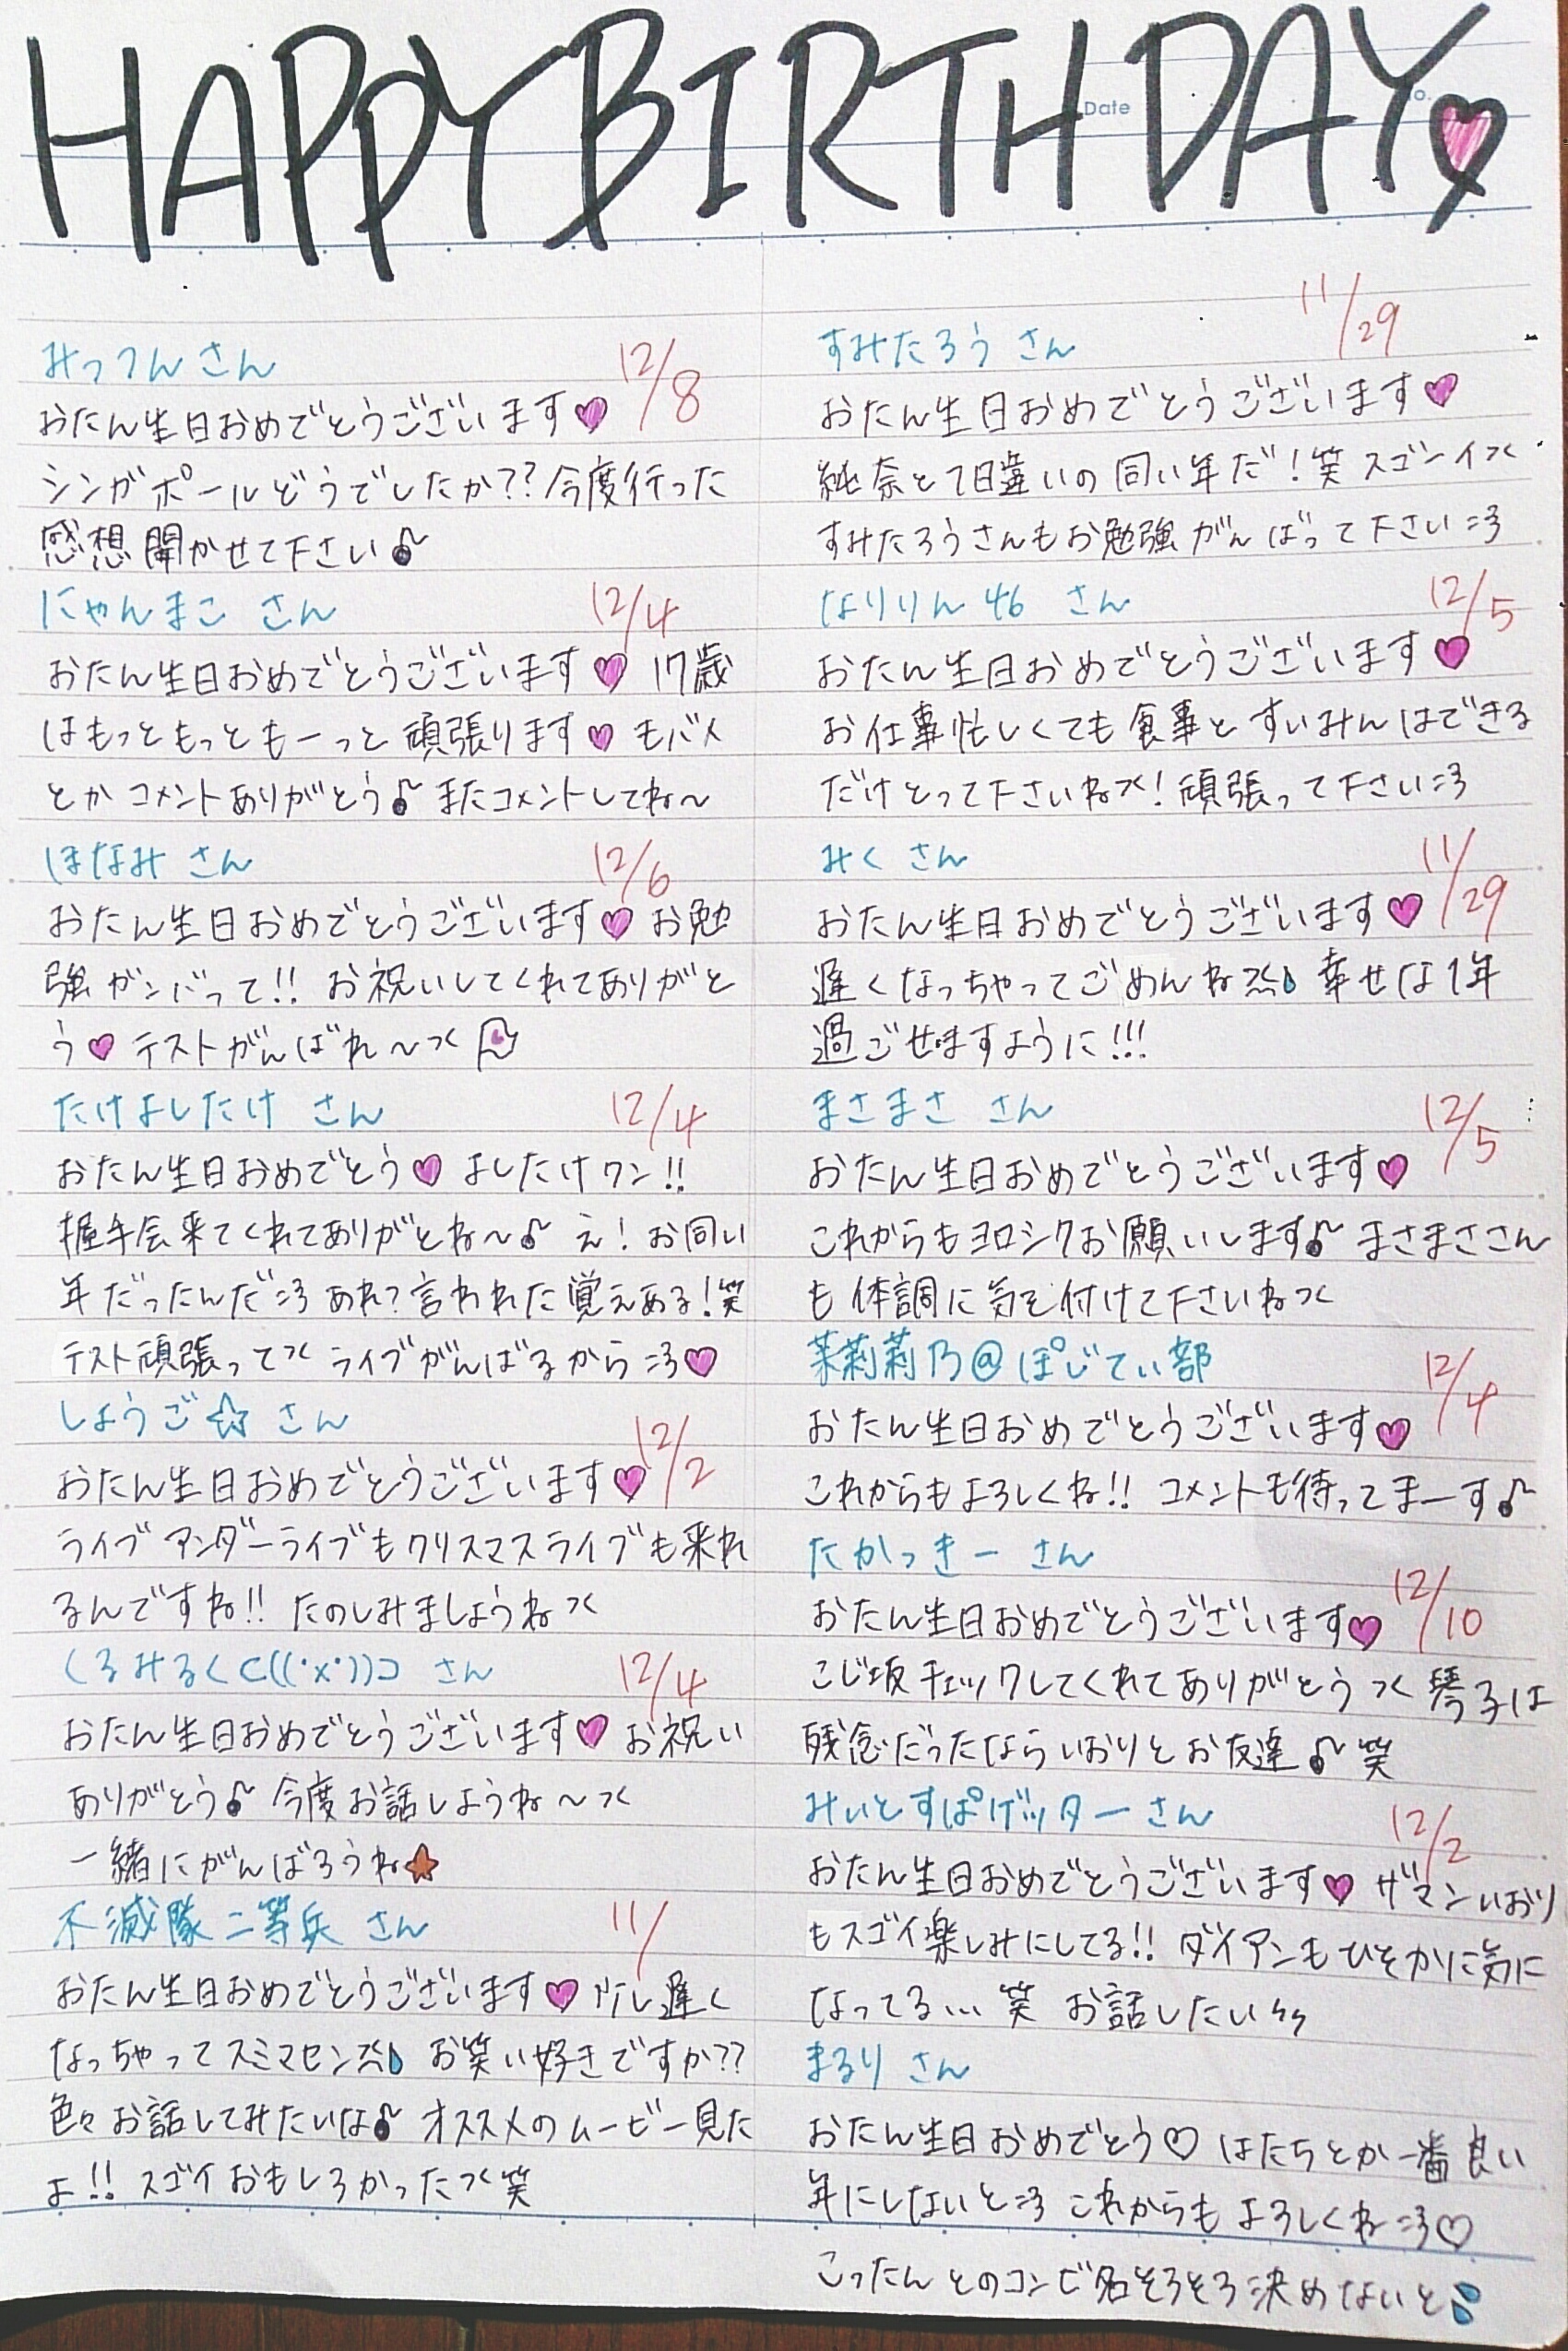 HAPPY BIRTHDAY
Date
No.
みってんさん 12/8
おたん生日おめでとうございます♥
シンガポールどうでしたか??今度行った
感想聞かせて下さい♪
にゃんまこ さん 12/4
おたん生日おめでとうございます♥ 17歳
はもっともっともーっと頑張ります♥ モバメ
とかコメントありがとう♪またコメントしてね〜
ほなみ さん 12/6
おたん生日おめでとうございます♥お勉
強ガンバって!! お祝いしてくれてありがと
う♥テストがんばれ〜
たけよしたけ さん 12/4
おたん生日おめでとう♥ よしたけワン!!
握手会来てくれてありがとね〜♪ え! お同い
年だったんだ あれ?言われた覚えある!笑
テスト頑張って ライブがんばるから ♥
しょうご☆ さん 12/2
おたん生日おめでとうございます♥
ライブ アンダーライブもクリスマスライブも来れ
るんですね!! たのしみましょうね
くるみるく⊂((・x・))⊃ さん 12/4
おたん生日おめでとうございます♥お祝い
ありがとう♪今度お話しようね〜
一緒にがんばろうね★
不滅隊二等兵 さん 11/
おたん生日おめでとうございます♥ 少し遅く
なっちゃってスミマセン お笑い好きですか??
色々お話してみたいな♪ オススメのムービー見た
よ!! スゴイおもしろかった 笑
すみたろう さん 11/29
おたん生日おめでとうございます♥
純奈と1日違いの同い年だ!笑 スゴーイ
すみたろうさんもお勉強がんばって下さい
なりりん46 さん 12/5
おたん生日おめでとうございます♥
お仕事忙しくても食事とすいみんはできる
だけとって下さいね!頑張って下さい
みく さん 11/29
おたん生日おめでとうございます♥
遅くなっちゃってごめんね 幸せな1年
過ごせますように!!!
まさまさ さん 12/5
おたん生日おめでとうございます♥
これからもヨロシクお願いします♪ まさまささん
も体調に気を付けて下さいね
茉莉莉乃@ぽじてぃ部 12/4
おたん生日おめでとうございます♥
これからもよろしくね!! コメントも待ってまーす♪
たかっきー さん 12/10
おたん生日おめでとうございます♥
こじ坂チェックしてくれてありがとう 琴子は
残念だったならいおりとお友達♪笑
みいとすぱげッターさん 12/2
おたん生日おめでとうございます♥ ザマンいおり
もスゴイ楽しみにしてる!! ダイアンもひそかに気に
なってる... 笑 お話したい
まるり さん
おたん生日おめでとう♡ はたちとか一番良い
年にしないと これからもよろしくね ♡
こったんとのコンビ名そろそろ決めないと